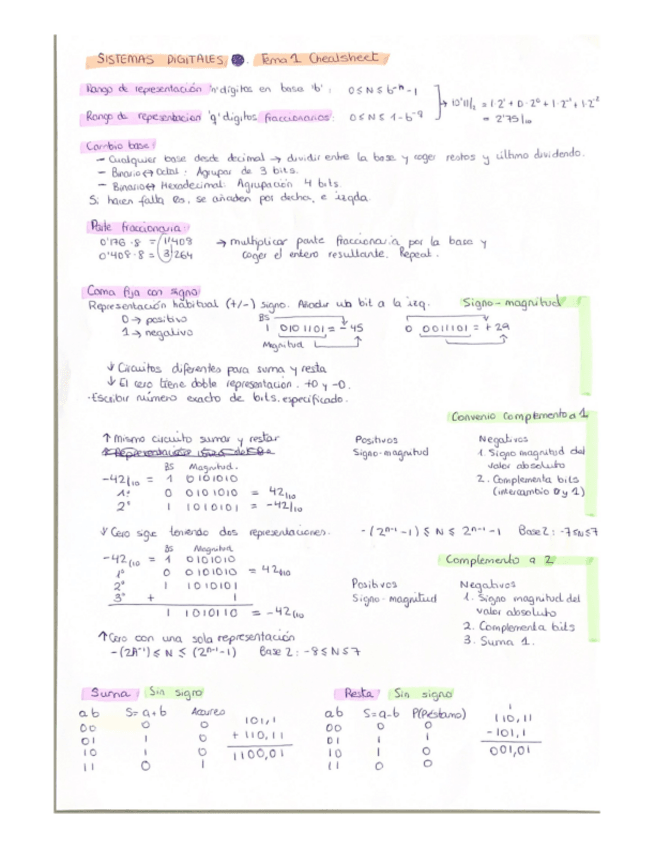 SISTEMAS DIGITALES . Tema 1 Cheatsheet
Rango de representación 'n' dígitos en base 'b' : 0 ≤ N ≤ b^-n - 1
Rango de representacion 'q' dígitos fraccionarios : 0 ≤ N ≤ 1 - b^-q
→ 10'11/₂ = 1·2¹ + 0·2⁰ + 1·2⁻¹ + 1·2⁻²
= 2'75/₁₀
Cambio base :
- Cualquier base desde decimal → dividir entre la base y coger restos y último dividendo.
- Binario ↔ Octal : Agrupar de 3 bits.
- Binario ↔ Hexadecimal : Agrupación 4 bits.
Si hacen falta 0s, se añaden por decha, e izqda.
Parte fraccionaria :
0'176 · 8 = 1'408 → multiplicar parte fraccionaria por la base y
0'408 · 8 = 3'264 coger el entero resultante. Repeat.
Coma fija con signo
Representación habitual (+/-) signo. Añadir un bit a la izq. Signo-magnitud
0 → positivo
1 → negativo
BS
1 0101101 = - 45 0 0011101 = + 29
Magnitud
↓ Circuitos diferentes para suma y resta
↓ El cero tiene doble representacion. +0 y -0.
· Escribir número exacto de bits especificado.
Convenio complemento a 1
↑ Mismo circuito sumar y restar
Positivos Negativos
Signo-magnitud 1. Signo magnitud del
valor absoluto
2. Complementa bits
(intercambio 0 y 1)
BS Magnitud.
-42/₁₀ = 1 0101010
1º 0 0101010 = 42/₁₀
2º 1 1010101 = -42/₁₀
↓ Cero sigue teniendo dos representaciones. -(2ⁿ⁻¹-1) ≤ N ≤ 2ⁿ⁻¹-1 Base 2 : -7≤N≤7
Complemento a 2
BS Magnitud
-42/₁₀ = 1 0101010
1º 0 0101010 = 42/₁₀
2º 1 1010101
3º + 1
1 1010110 = -42/₁₀
Positivos Negativos
Signo-magnitud 1. Signo magnitud del
valor absoluto
2. Complementa bits
3. Suma 1.
↑ Cero con una sola representación
-(2ⁿ⁻¹) ≤ N ≤ (2ⁿ⁻¹-1) Base 2 : -8≤N≤7
Suma / Sin signo
ab S=a+b Acarreo
00 0 0
01 1 0
10 1 0
11 0 1
101,1
+ 110,11
1100,01
Resta / Sin signo
ab S=a-b P(Préstamo)
00 0 0
01 1 1
10 1 0
11 0 0
1
110,11
-101,1
001,01